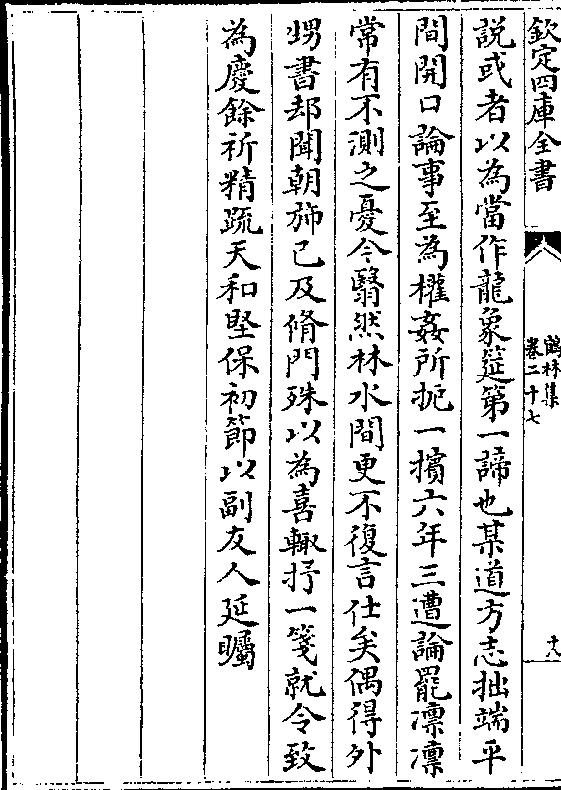 欽定四庫全書
鶴林集
卷二十七
十八
説或者以為當作龍象筵第一諦也某道方志拙端平
間開口論事至為權姦所扼一擯六年三遭論罷凛凛
常有不測之憂今翳然林水間更不復言仕矣偶得外
甥書却聞朝斾已及脩門殊以為喜輙抒一箋就令致
為慶餘祈精疏天和堅保初節以副友人延矚